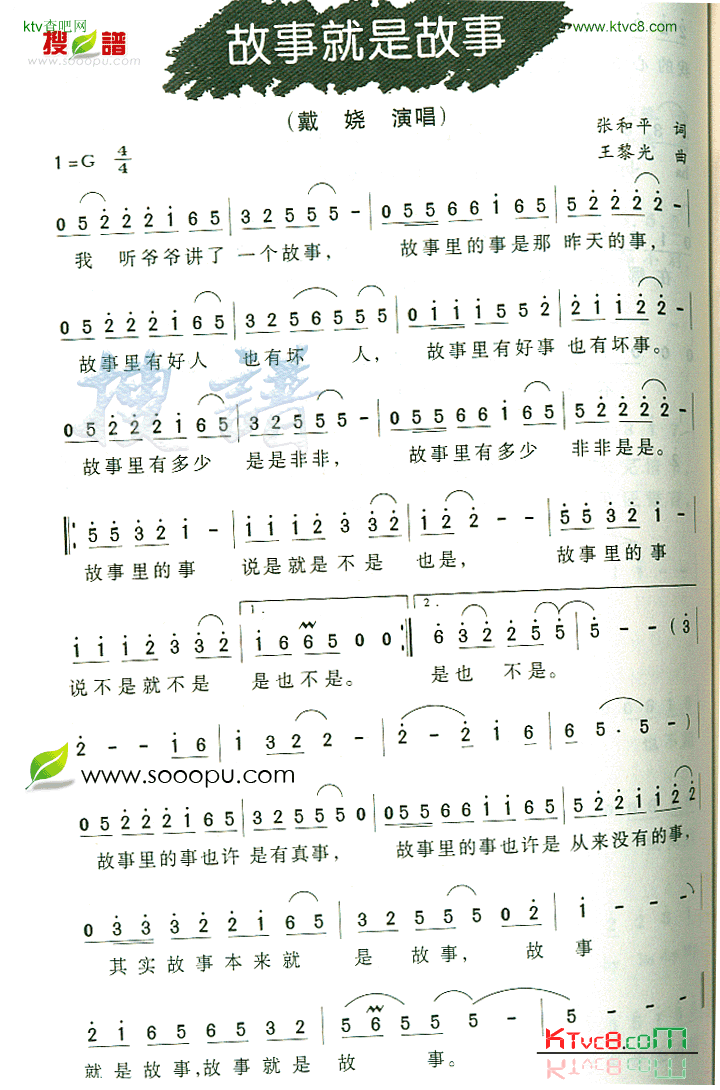 ktv杳吧网
搜谱
www.sooopu.com
www.ktvc8.com
故事就是故事
(戴 娆 演唱)
张和平 词
1=G 4/4
王黎光 曲
0 5 2 2 2 1 6 5 | 3 2 5 5 5 - | 0 5 5 6 6 1 6 5 | 5 2 2 2 2 - |
我 听爷爷讲了 一个故事, 故事里的事是那 昨天的事,
0 5 2 2 2 1 6 5 | 3 2 5 6 5 5 5 | 0 1 1 1 5 5 2 | 2 1 1 2 2 - |
故事里有好人 也有坏 人, 故事里有好事 也有坏事。
搜谱
0 5 2 2 2 1 6 5 | 3 2 5 5 5 - | 0 5 5 6 6 1 6 5 | 5 2 2 2 2 - |
故事里有多少 是是非非, 故事里有多少 非非是是。
5 5 3 2 1 - | 1 1 1 2 3 3 2 | 1 2 2 - | 5 5 3 2 1 - |
故事里的事 说是就是不是 也是, 故事里的事
1. 2.
1 1 1 2 3 3 2 | 1 6 6 5 0 0 :| 6 3 2 2 5 5 | 5 - - (3
说不是就不是 是也不是。 是也 不是。
2 - - 1 6 | 1 3 2 2 - | 2 - 2 1 6 | 6 5. 5 - )
www.sooopu.com
0 5 2 2 2 1 6 5 | 3 2 5 5 5 0 | 0 5 5 6 6 1 1 6 5 | 5 2 2 1 1 2 2
故事里的事也许 是有真事, 故事里的事也许是 从来没有的事,
0 3 3 3 2 2 1 6 5 | 3 2 5 5 5 0 2 | 1 - - -
其实故事本来就 是 故事, 故 事
2 1 6 5 6 5 3 2 | 5 6 5 5
就是故事,故事就是 故 事。
KTvc8.com